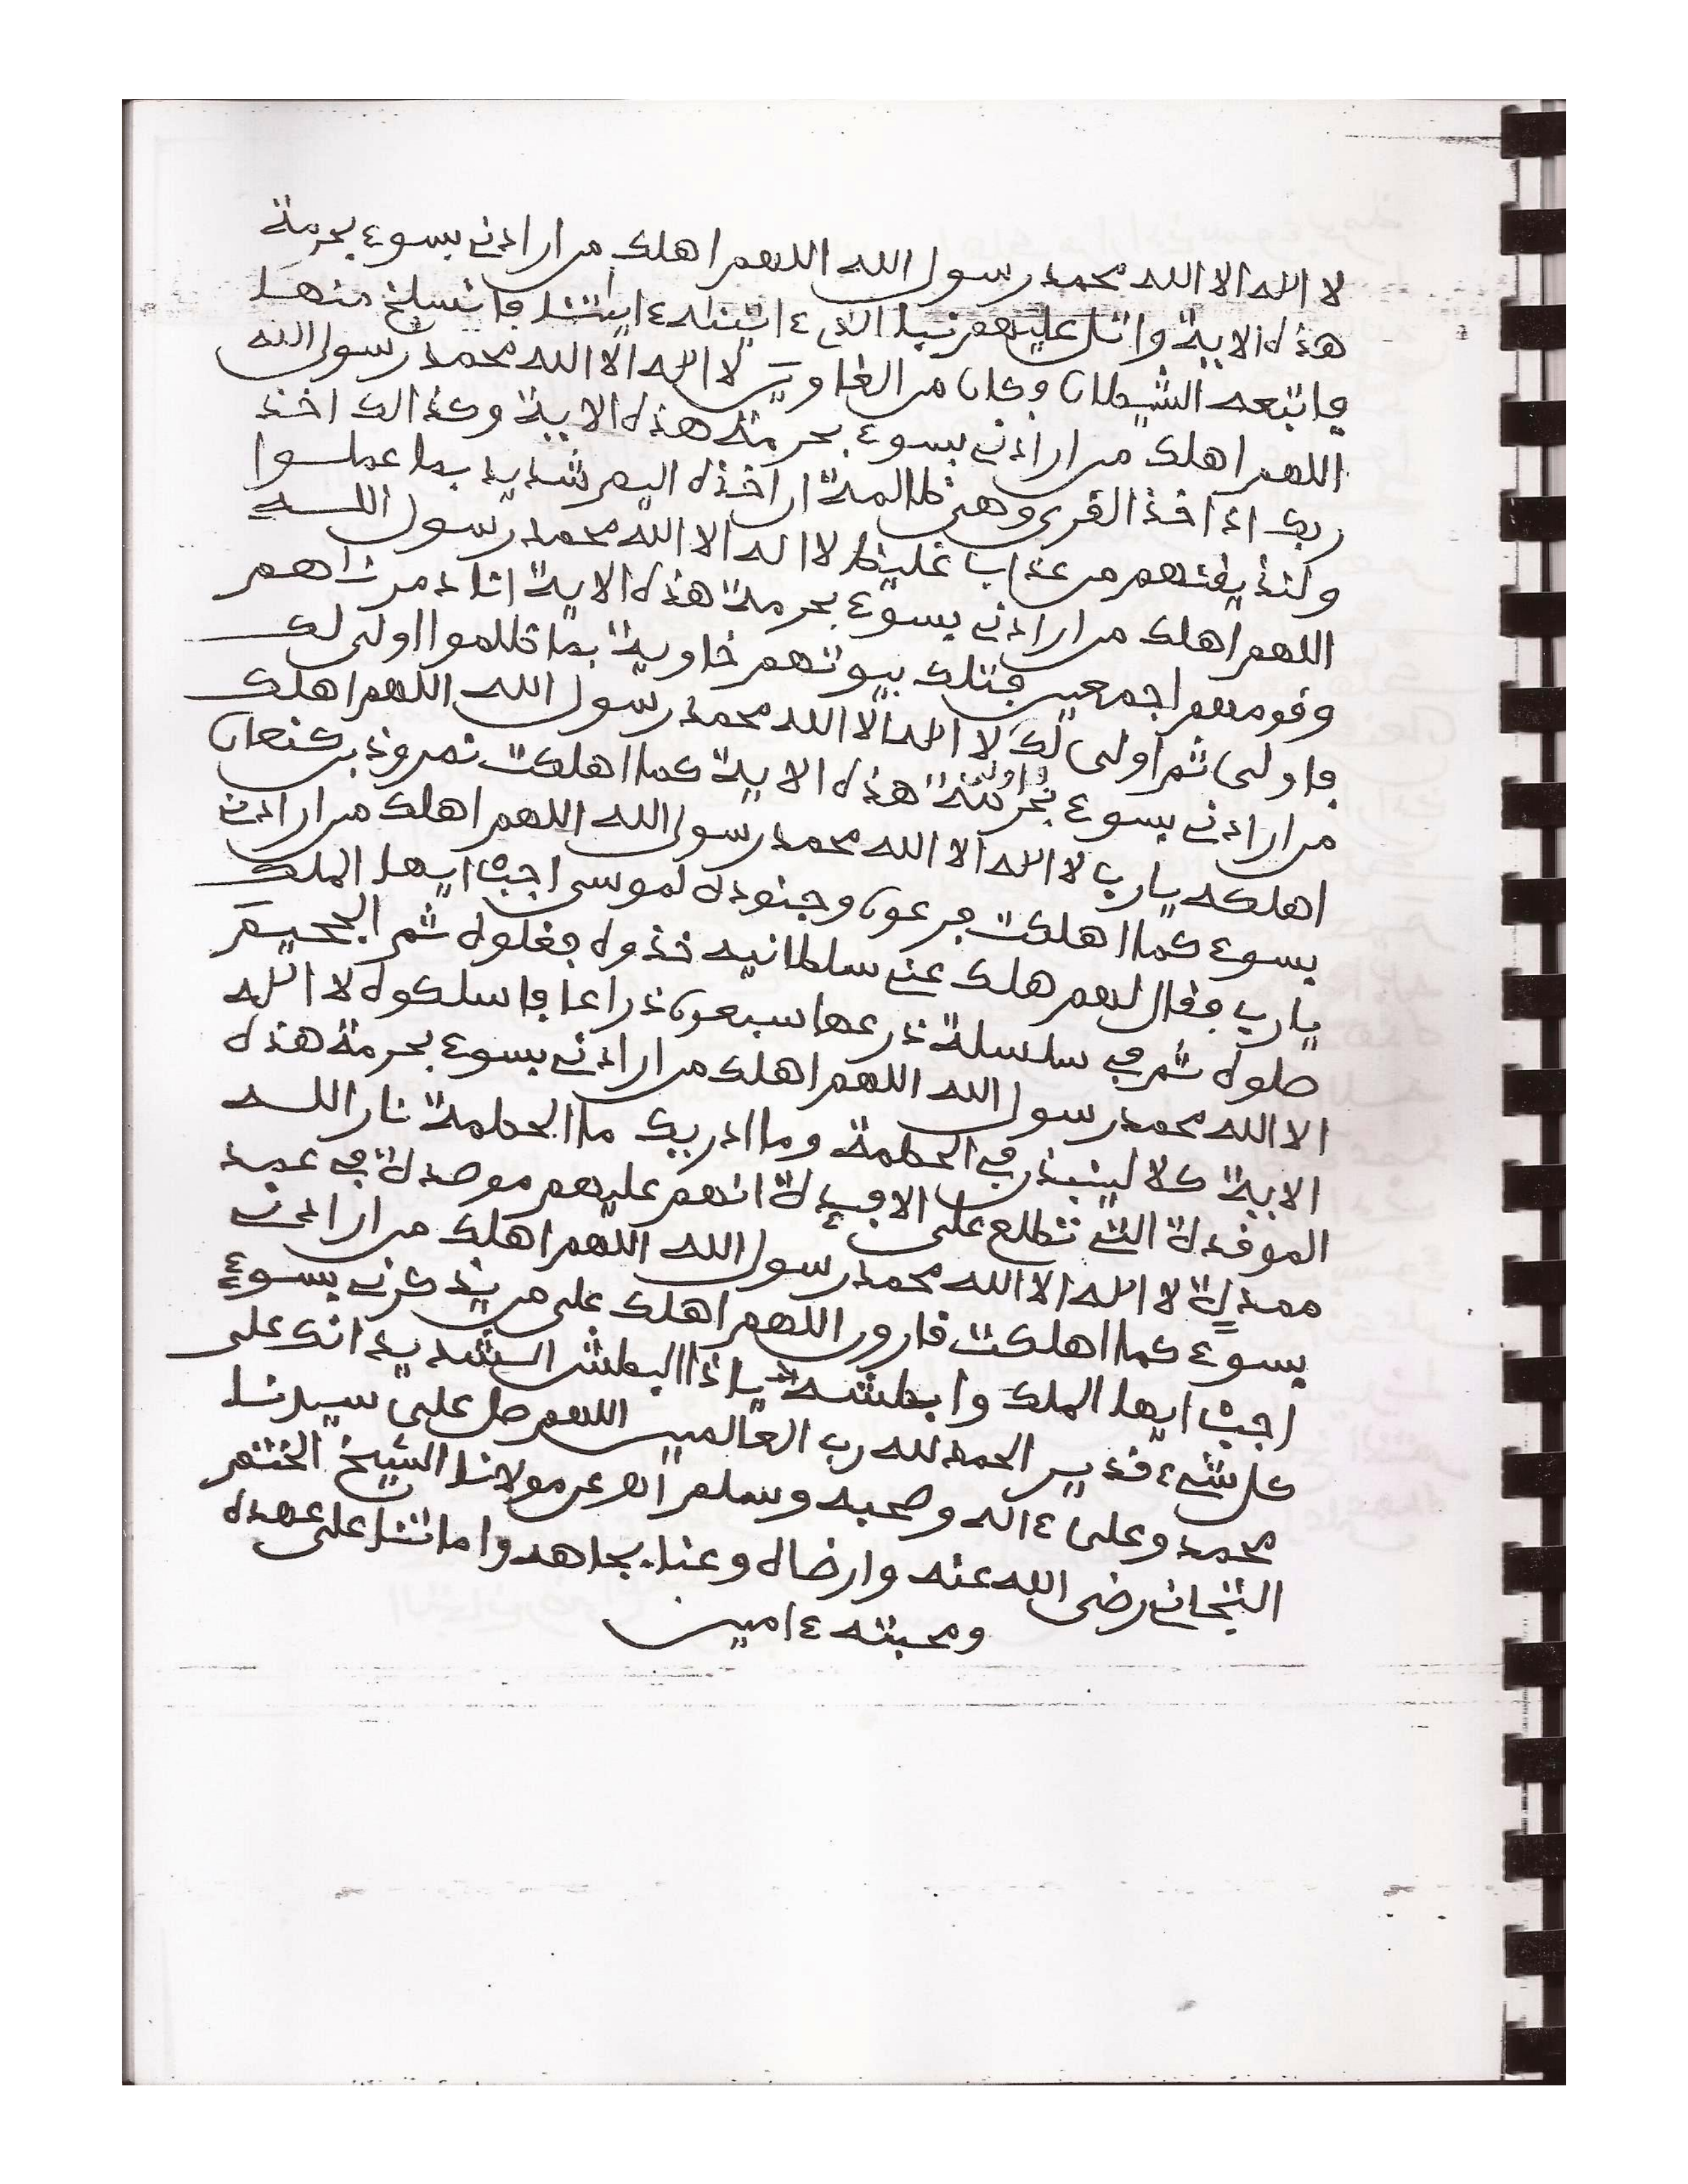 لا اله الا الله محمد رسول الله اللهم اهلك من ارادني بسوء بحرمة
هذه الاية واتل عليهم نبا الذي ءاتينه ءايتنا فانسلخ منها
فاتبعه الشيطان وكان من الغاوين لا اله الا الله محمد رسول الله
اللهم اهلك من ارادني بسوء بحرمة هذه الاية وكذالك اخذ
ربك اذا اخذ القرى وهي ظالمة ان اخذه اليم شديد بما عملوا
ولنذيقنهم من عذاب غليظ لا اله الا الله محمد رسول الله
اللهم اهلك من ارادني بسوء بحرمة هذه الاية انا دمرناهم
وقومهم اجمعين فتلك بيوتهم خاوية بما ظلموا اولى لك
فاولى ثم اولى لك لا اله الا الله محمد رسول الله اللهم اهلك
من ارادني بسوء بحرمة هذه الاية كما اهلكت نمروذ بن كنعان
اهلكه يارب لا اله الا الله محمد رسول الله اللهم اهلك من ارادني
بسوء كما اهلكت فرعون وجنوده لموسى اجب ايها الملك
يارب فقال لهم هلك عني سلطانيه خذوه فغلوه ثم الجحيم
صلوه ثم في سلسلة ذرعها سبعون ذراعا فاسلكوه لا اله
الا الله محمد رسول الله اللهم اهلك من ارادني بسوء بحرمة هذه
الاية كلا لينبذن في الحطمة وما ادريك ما الحطمة نار الله
الموقدة التي تطلع على الافيدة انهم عليهم موصدة في عمد
ممددة لا اله الا الله محمد رسول الله اللهم اهلك من ارادني
بسوء كما اهلكت قارون اللهم اهلك على من يذكرني بسوء
اجب ايها الملك وابطشه ياذا البطش الشديد انك على
كل شيء قدير الحمد لله رب العالمين اللهم صل على سيدنا
محمد وعلى ءاله وصحبه وسلم انه عن مولانا الشيخ الختم
التجاني رضى الله عنه وارضاه وعنا بجاهه واماتنا على عهده
ومحبته ءامين